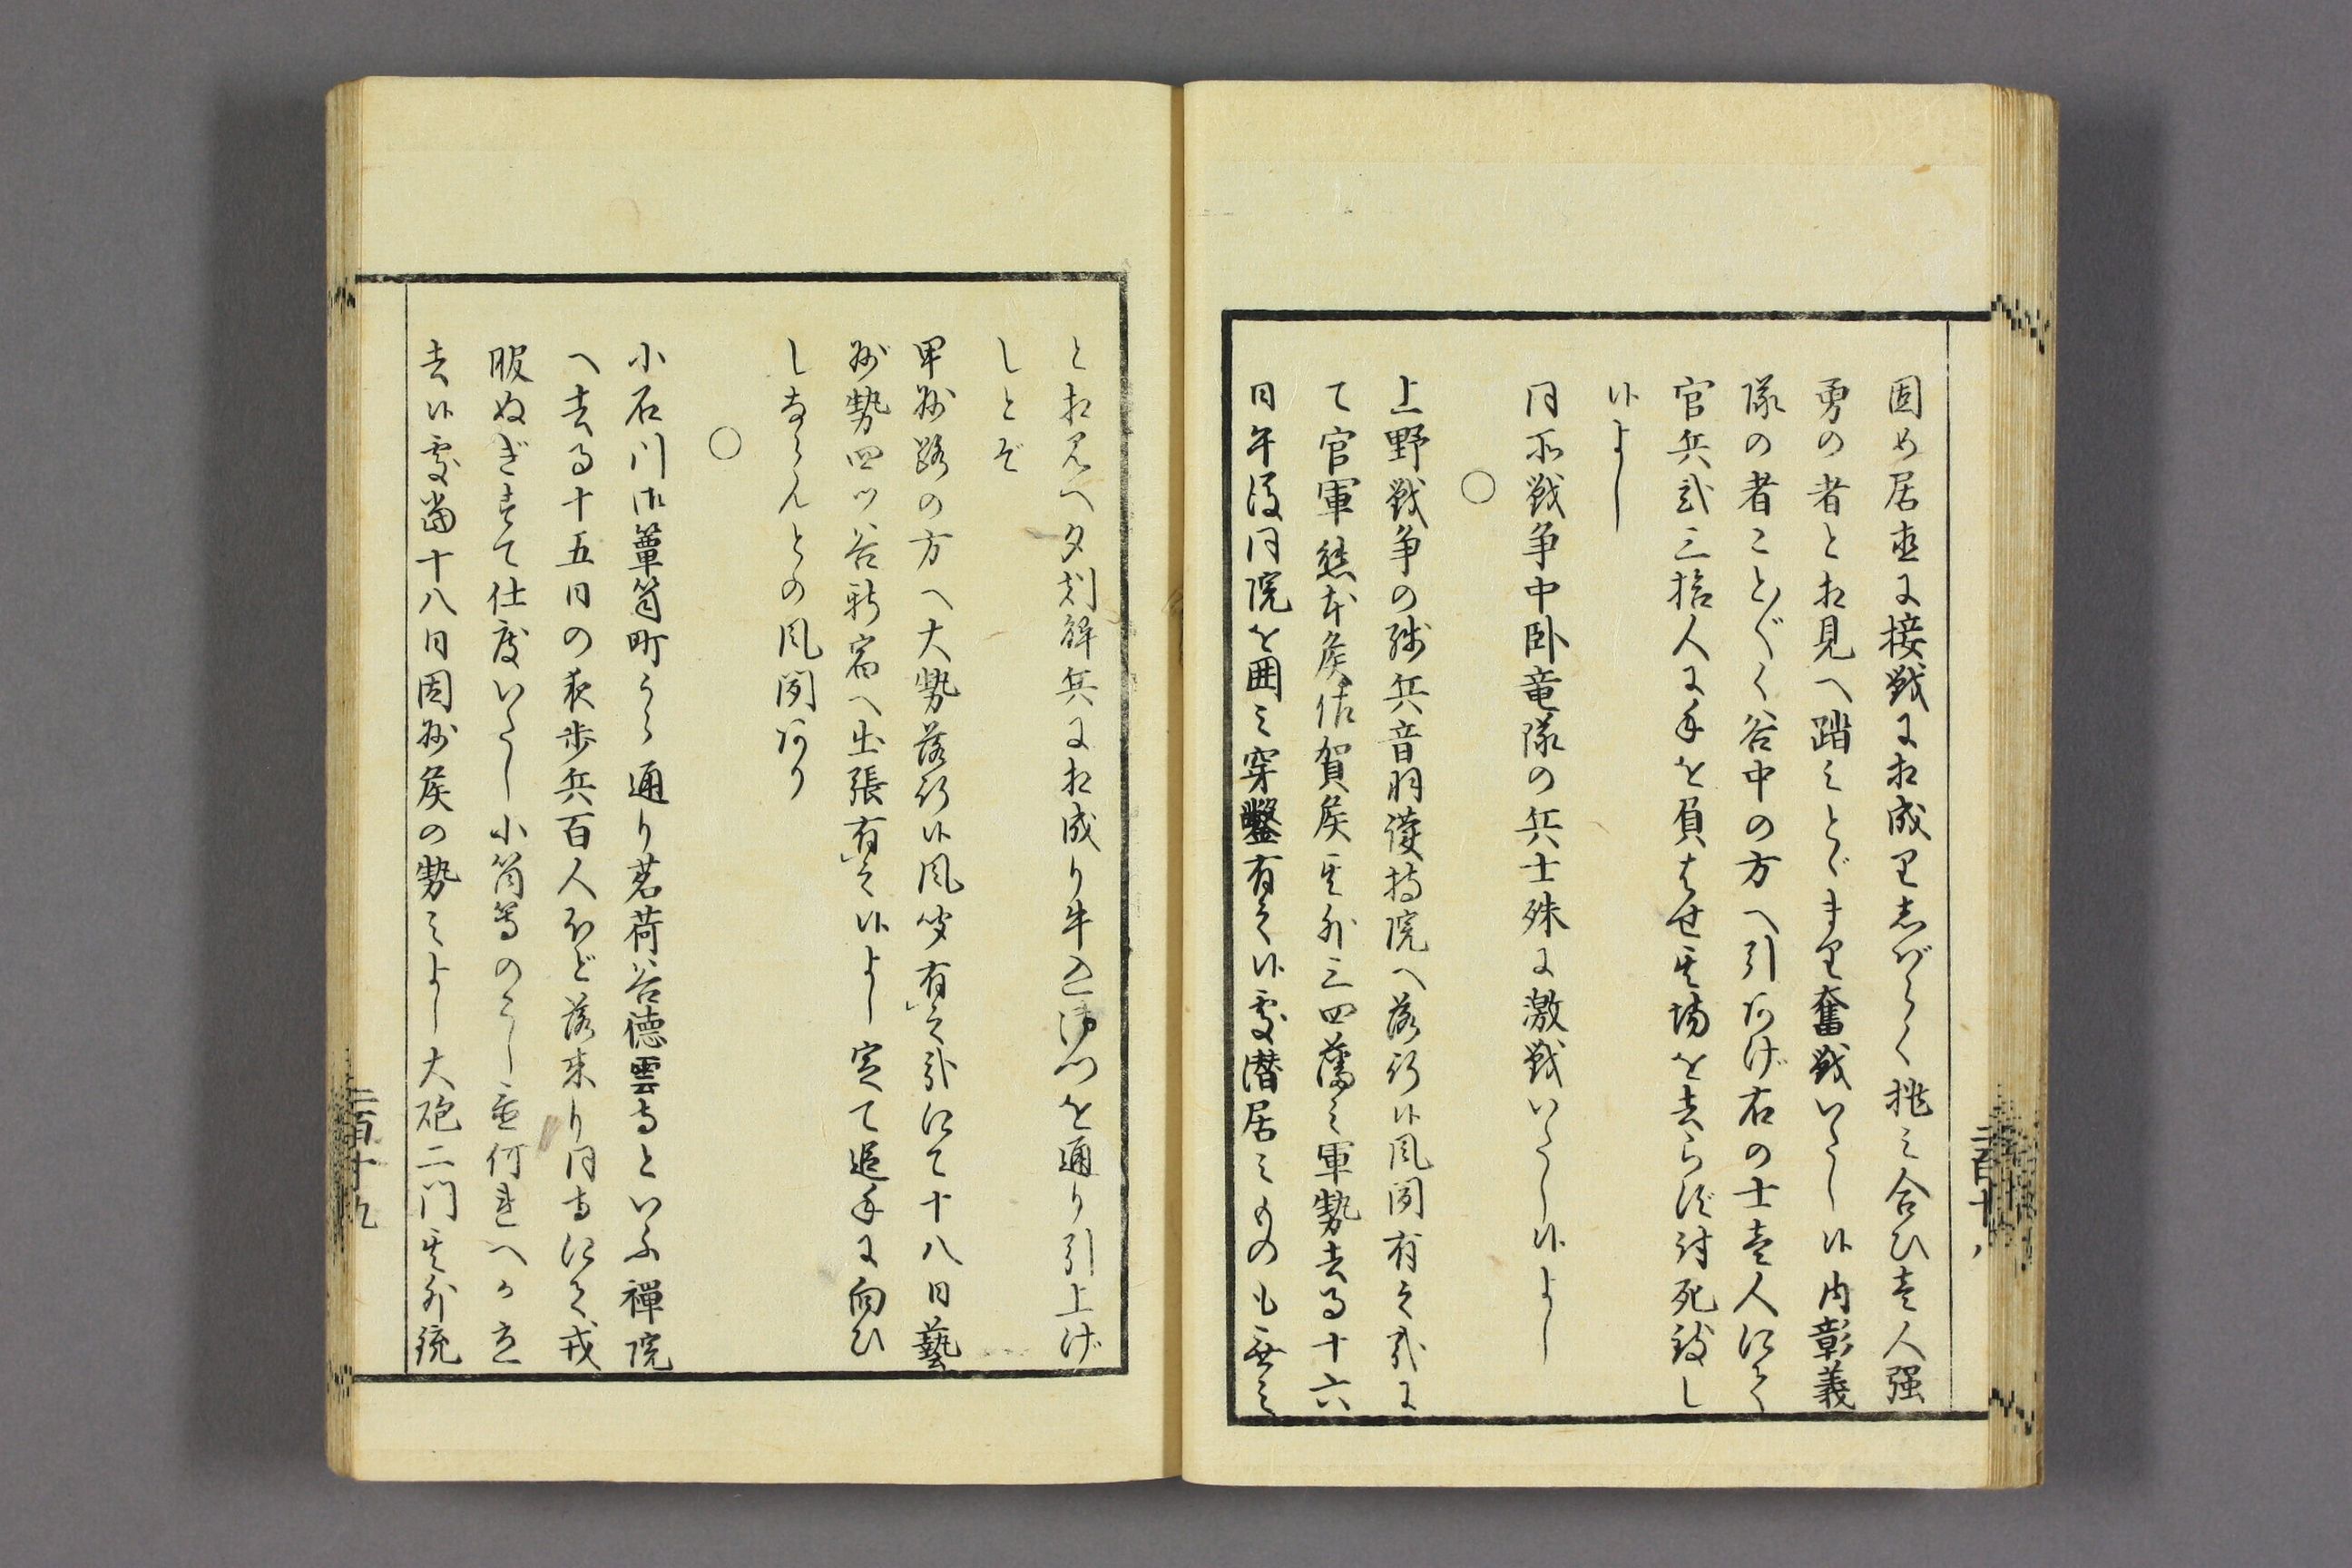 固め居直に接戦に相成りしばらく挑み合ひ壱人强
勇の者と相見へ踏みとゞまり奮戦いたし候内彰義
隊の者こと〴〵く谷中の方へ引あげ右の士壱人にて
官兵弐三拾人に手を負はせ其場を去らず討死致し
候よし
同所戦争中臥竜隊の兵士殊に激戦いたし候よし
○
上野戦争の残兵音羽護持院へ落行候風聞有之哉に
て官軍熊本侯佐賀侯其外三四藩之軍勢去る十六
日午後同院を囲み穿鑿有之候処潜居之ものも無之
二百十八
と相見へ夕刻解兵に相成り牛込御門を通り引上げ
しとぞ
甲州路の方へ大勢落行候風聞有之哉にて十八日藝
州勢四ッ谷新宿へ出張有之候よし定て追手に向ひ
しならんとの風聞あり
○
小石川御簞笥町うら通り茗荷谷徳雲寺といふ禅院
へ去る十五日の夜歩兵百人ほど落来り同寺にて戎
服ぬぎすて仕度いたし小筒等のこし置何れへか立
去候処当十八日因州侯の勢之よし大砲二門其外銃
二百十九